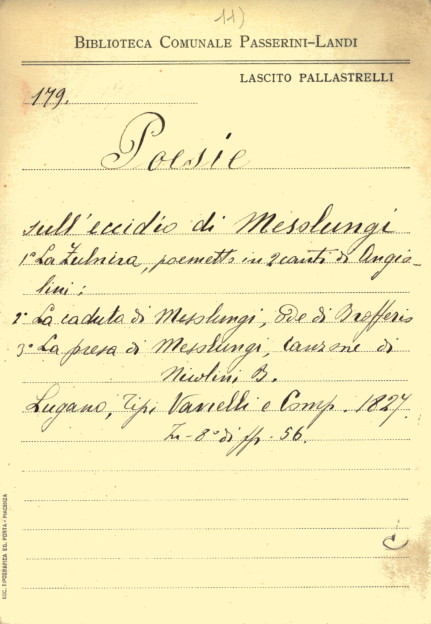 11)
BIBLIOTECA COMUNALE PASSERINI-LANDI
LASCITO PALLASTRELLI
179.
Poesie
sull'eccidio di Messlungi
1° La Zulnira, poemetto in 2 canti di Angio-
lini;
2° La caduta di Messlungi, Ode di Brofferio
3° La presa di Messlungi, canzone di
Nicolini B.
Lugano, Tip. Vanelli e Comp. 1827
In-8° di pp. 56.
SOC. TIPOGRAFICA ED. PORTA - PIACENZA